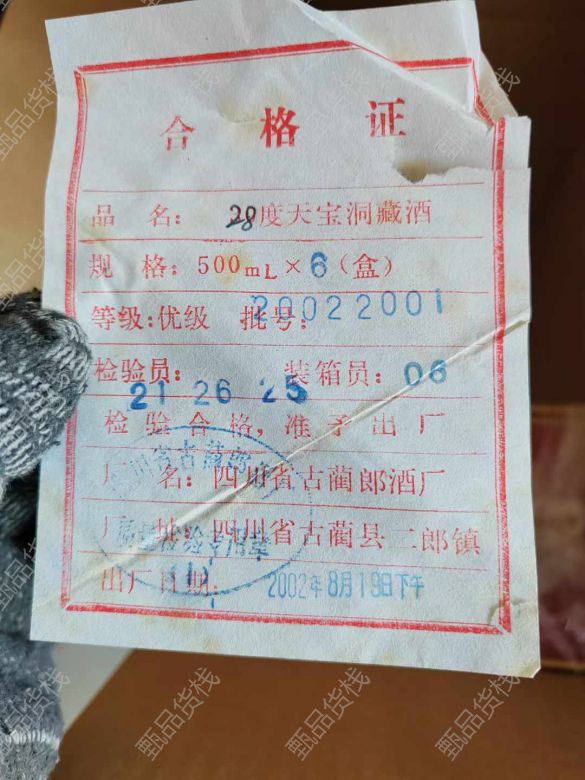 合格证
品 名: 28度天宝洞藏酒
规 格: 500mL×6(盒)
等级:优级 批号: 20022001
检验员: 装箱员: 06
21 26 25
检验合格,准予出厂
厂 名: 四川省古蔺郎酒厂
厂 址: 四川省古蔺县二郎镇
出厂日期: 2002年8月19日下午
甄品货栈